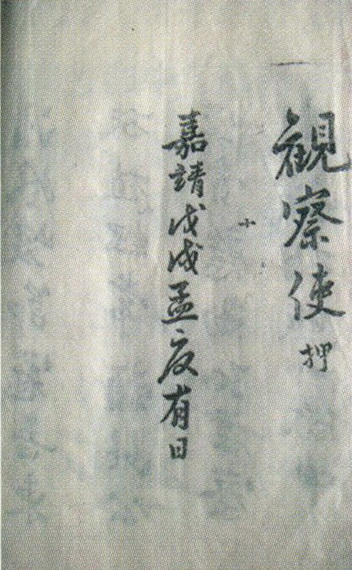 觀察使押
嘉請戊戌孟夏有日